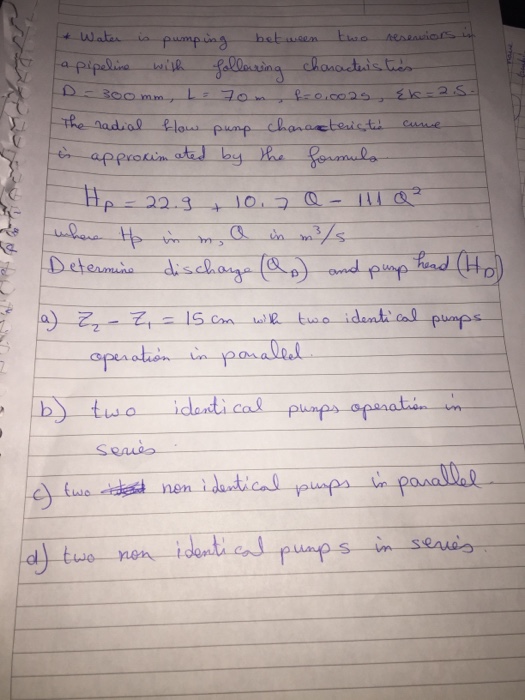 * Water is pumping between two reservoirs in
a pipeline with following characteristics
D = 300 mm, L = 70 m, f = 0.0025, ΣK = 2.5.
The radial flow pump characteristic curve
is approximated by the formula
Hp = 22.9 + 10.7 Q - 111 Q²
where Hp in m, Q in m³/s
Determine discharge (QD) and pump head (HD)
a) Z₂ - Z₁ = 15 cm with two identical pumps
operation in paralel.
b) two identical pumps operation in
series.
c) two non identical pumps in parallel.
d) two non identical pumps in series.